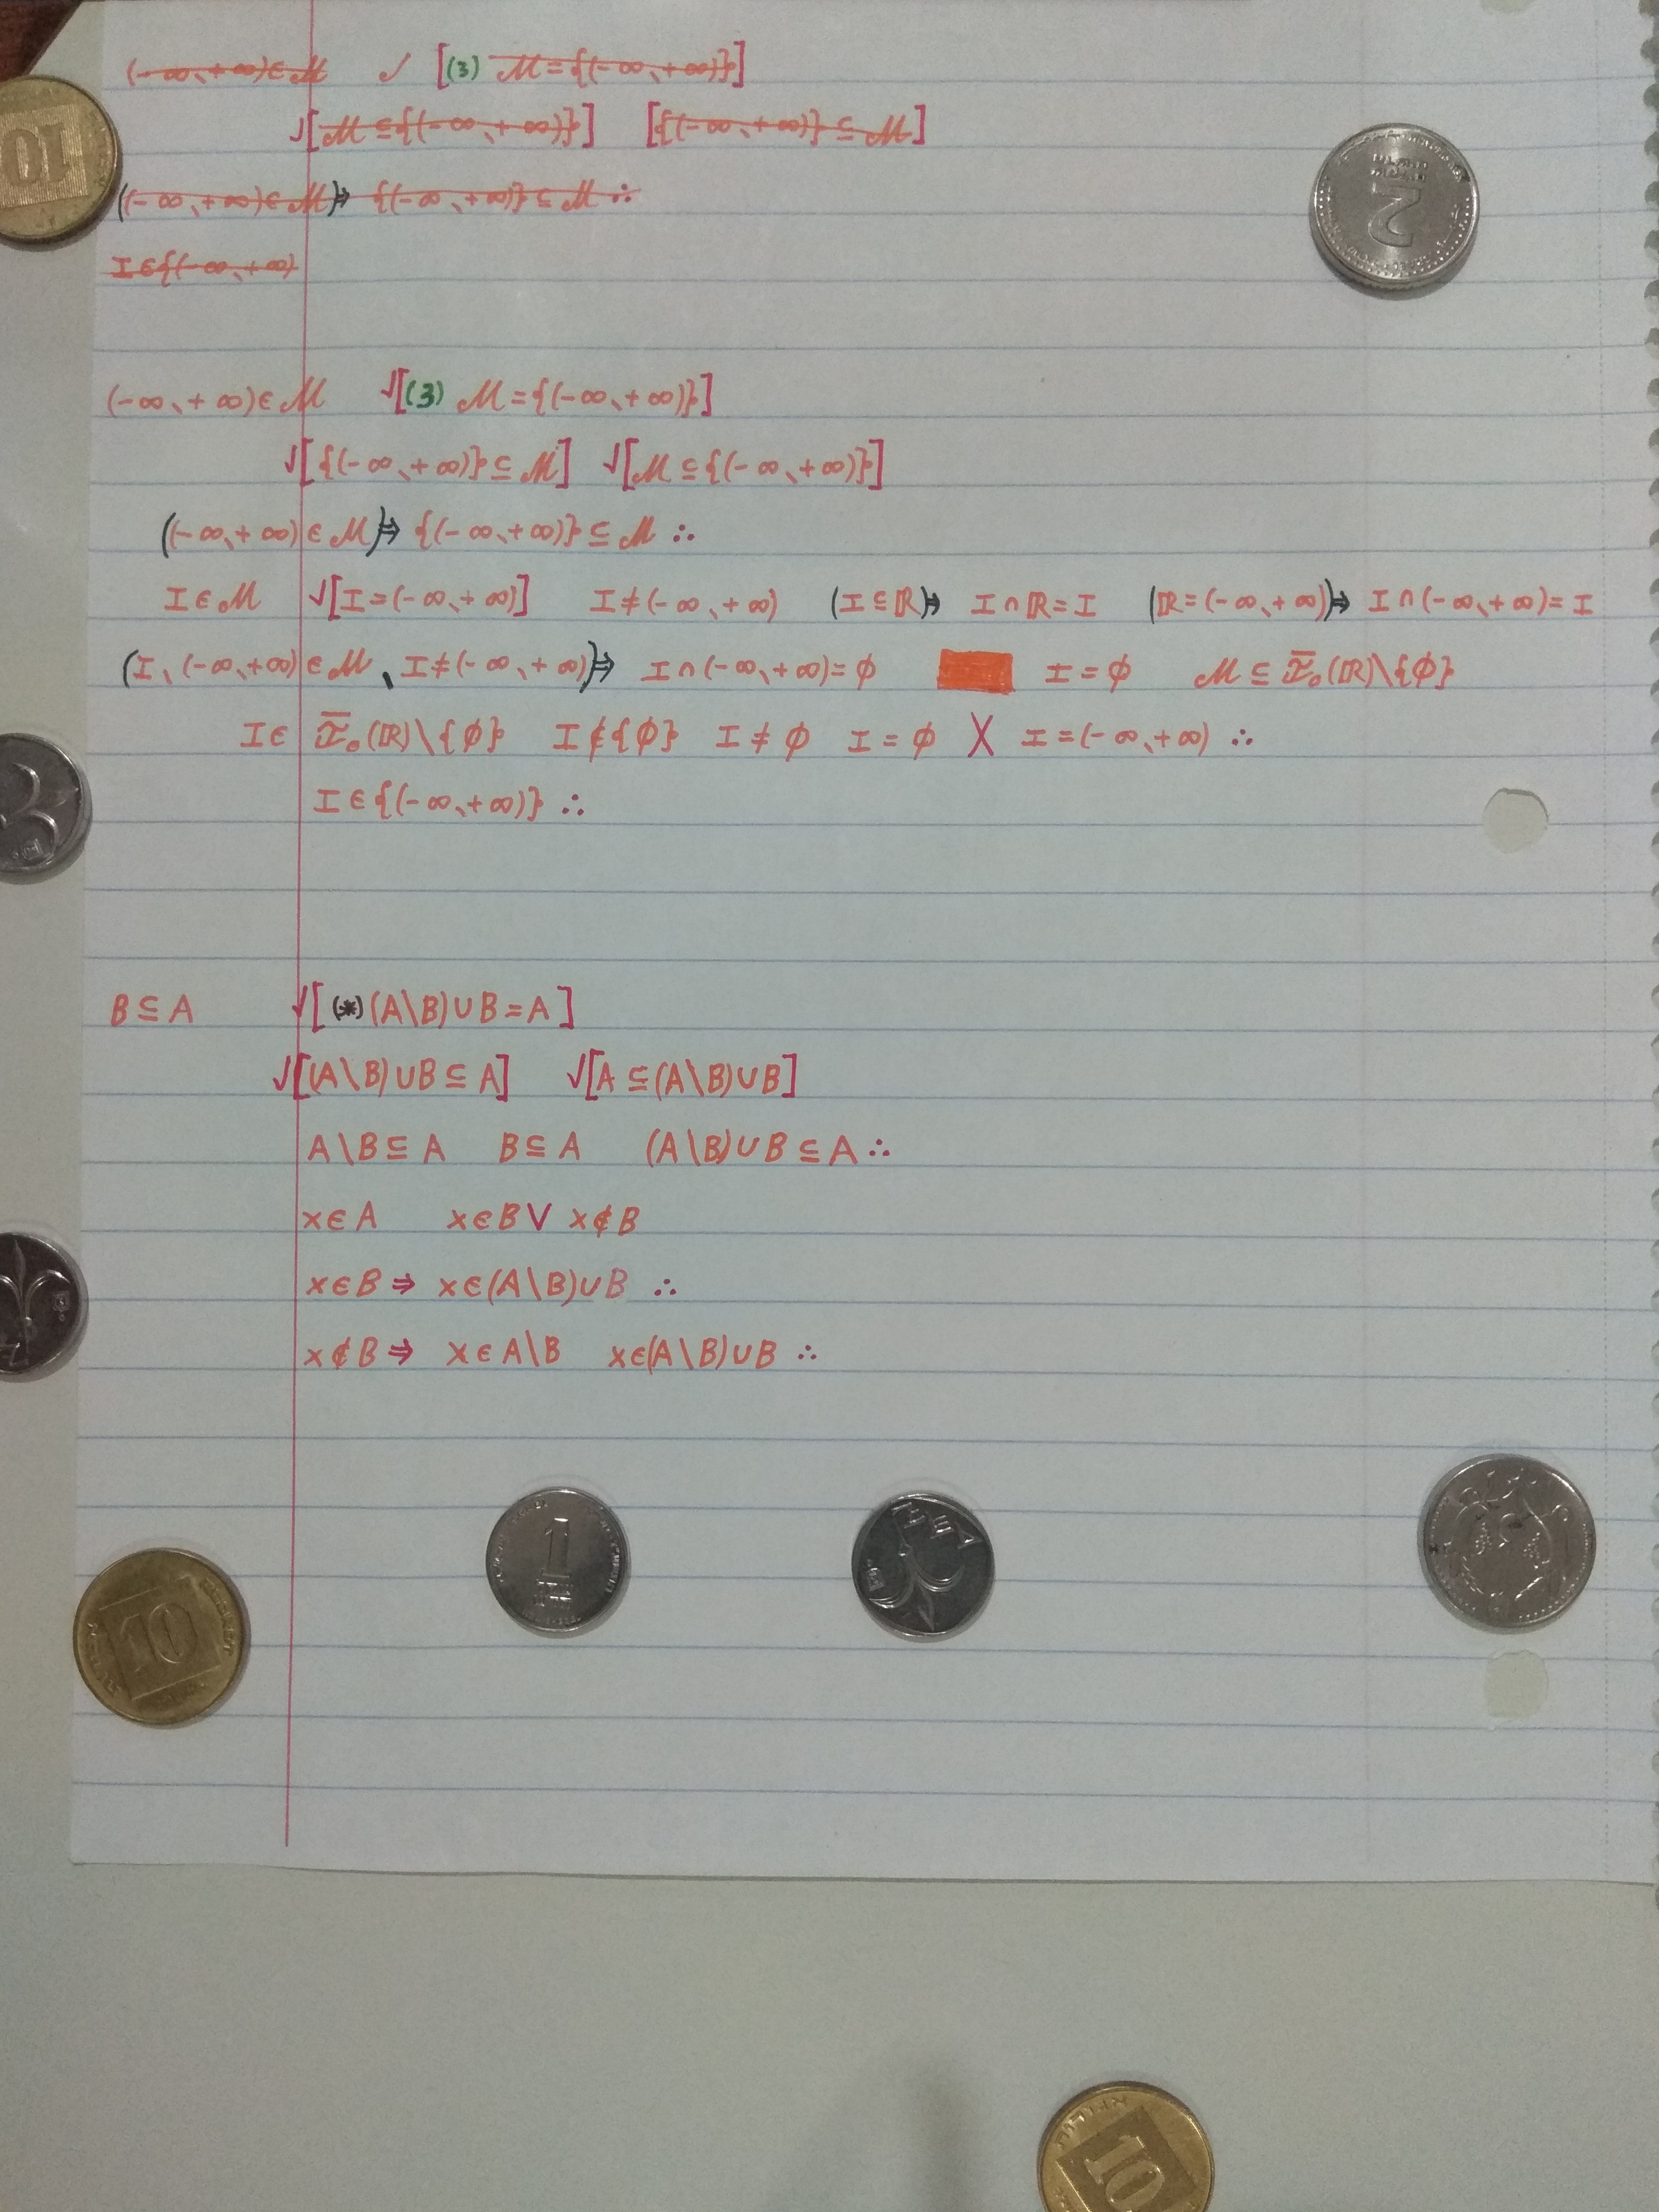 (-∞、+∞)∈ℳ √ [(3) ℳ={(-∞、+∞)}]
√[ℳ⊆{(-∞、+∞)}] [{(-∞、+∞)}⊆ℳ]
((-∞、+∞)∈ℳ)⇒ {(-∞、+∞)}⊆ℳ ∴
I∈{(-∞、+∞)
(-∞、+∞)∈ℳ √[(3) ℳ={(-∞、+∞)}]
√[{(-∞、+∞)}⊆ℳ] √[ℳ⊆{(-∞、+∞)}]
((-∞、+∞)∈ℳ)⇒ {(-∞、+∞)}⊆ℳ ∴
I∈ℳ √[I=(-∞、+∞)] I≠(-∞、+∞) (I⊆ℝ)⇒ I∩ℝ=I (ℝ=(-∞、+∞))⇒ I∩(-∞、+∞)=I
(I、(-∞、+∞)∈ℳ、I≠(-∞、+∞))⇒ I∩(-∞、+∞)=∅ I=∅ ℳ⊆ℐ̅₀(ℝ)\{∅}
I∈ ℐ̅₀(ℝ)\{∅} I∉{∅} I≠∅ I=∅ X I=(-∞、+∞) ∴
I∈{(-∞、+∞)} ∴
B⊆A √[(*) (A\B)∪B=A]
√[(A\B)∪B⊆A] √[A⊆(A\B)∪B]
A\B⊆A B⊆A (A\B)∪B⊆A ∴
x∈A x∈B∨ x∉B
x∈B ⇒ x∈(A\B)∪B ∴
x∉B ⇒ x∈A\B x∈(A\B)∪B ∴
10
2
1
10
10